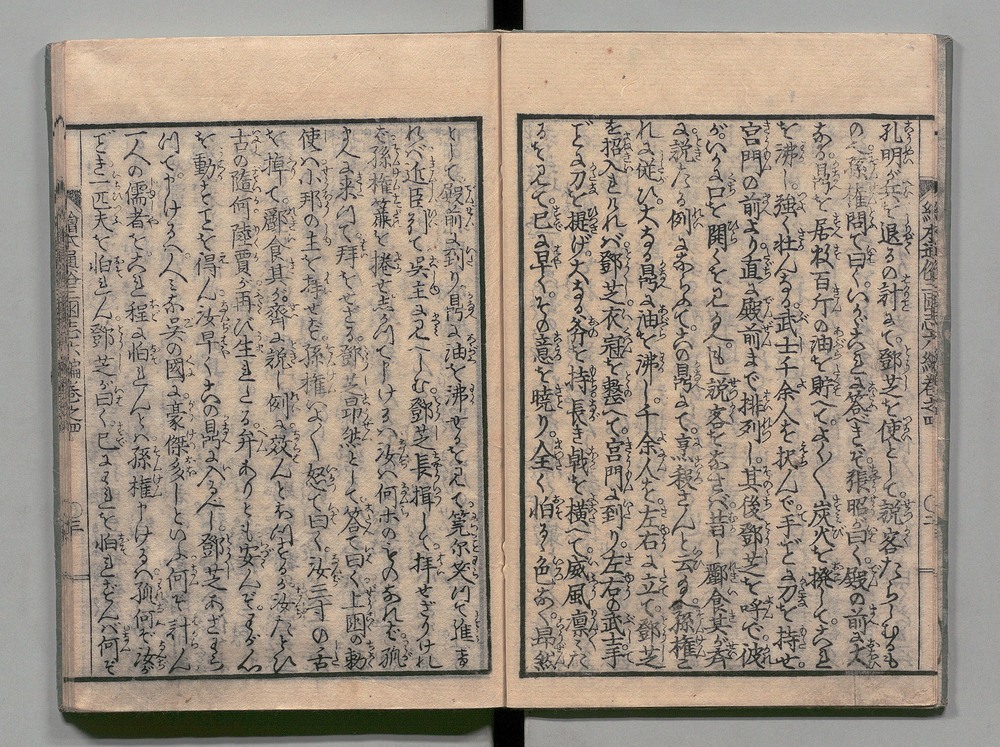 孔明が兵を退るの計にて鄧芝を使として説客たらしむるも
の也孫権問て曰くいかに是に答へきぞ張昭が曰く殿の前に大
なる鼎を居数百斤の油を貯へてよく炭火を撓して是を
を沸し強く壮んなる武士千余人を択んで手ど刀を持せ
宮門の前より直に殿前まで排列し其後鄧芝を呼で彼
がいまだ口を開くをまたず説客をなさば昔し酈食其が斉
に説たる例にならふて此鼎にて烹殺さんと云る孫権こ
れに従ひ大なる鼎に油を沸し千余人を左右に立て鄧芝
を招入ければ鄧芝衣冠を整へて宮門に到り左右の武士手
ど刀を提げ大なる斧を持長き戟を横て威風凛〱た
るを見て已に早くその意を暁り全く怕るゝ色なく昻然
として殿前に到り鼎に油を沸せるを見て莞尓と笑ひて進
れば近臣引て呉主に見へしむ鄧芝長揖して拝せざりけれ
ば孫権簾を捲せ怒つて申しけるは汝は何ホのものなれば孤
に来つて拝をせざる鄧芝昻然として答て曰く上国の勅
使は小邦の主を拝せず孫権大によく怒て曰く汝三寸の舌
を掉て酈食其が斉に説し例に效んと打つるか汝たとひ
古の隨何陸賈が再び生れたる弁ありとも安んぞ我が心
を動すことを得ん汝早く此鼎に入るべし鄧芝あざわら
つて申けるは人〻みな呉の國に豪傑多しといふ何ぞ計らん
一人の儒者を是程に怕れんとは孫権申けるは孤何ぞ汝
ごとき一匹夫を怕れん鄧芝が曰く已にこれを怕れずんば何ぞ
繪本通俗三國志六編巻之四
〇二
繪本通俗三國志六編巻之四
〇三